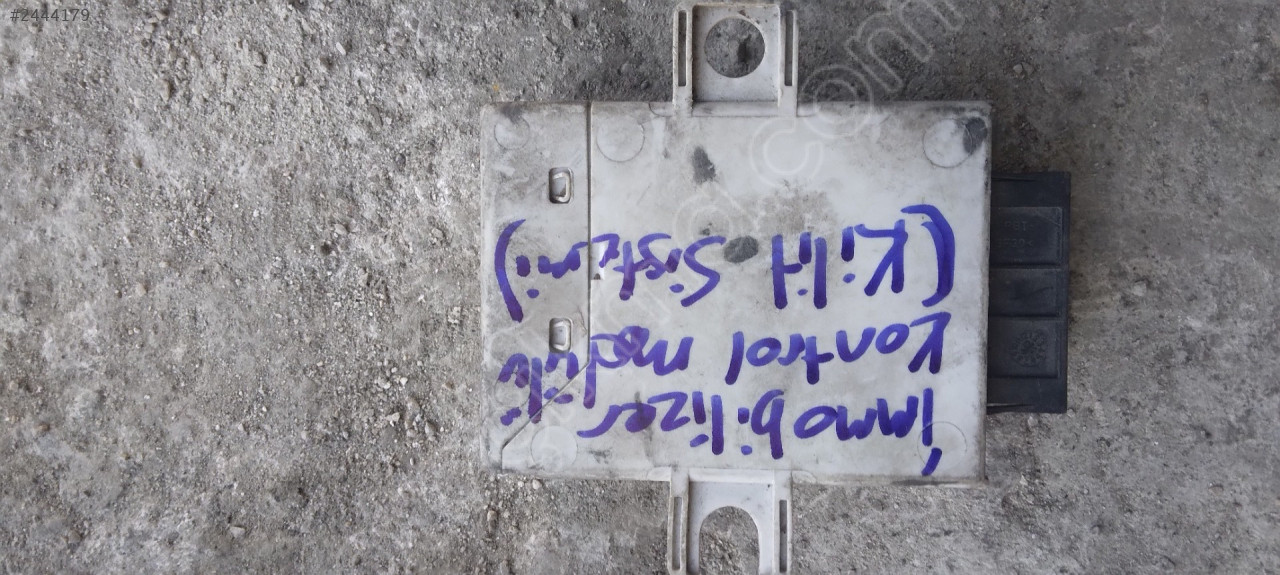 #2444179
immobilizer
kontrol modülü
(Kilit Sistemi)